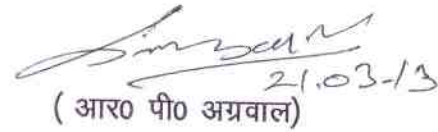 21.03-13
( आर0 पी0 अग्रवाल)